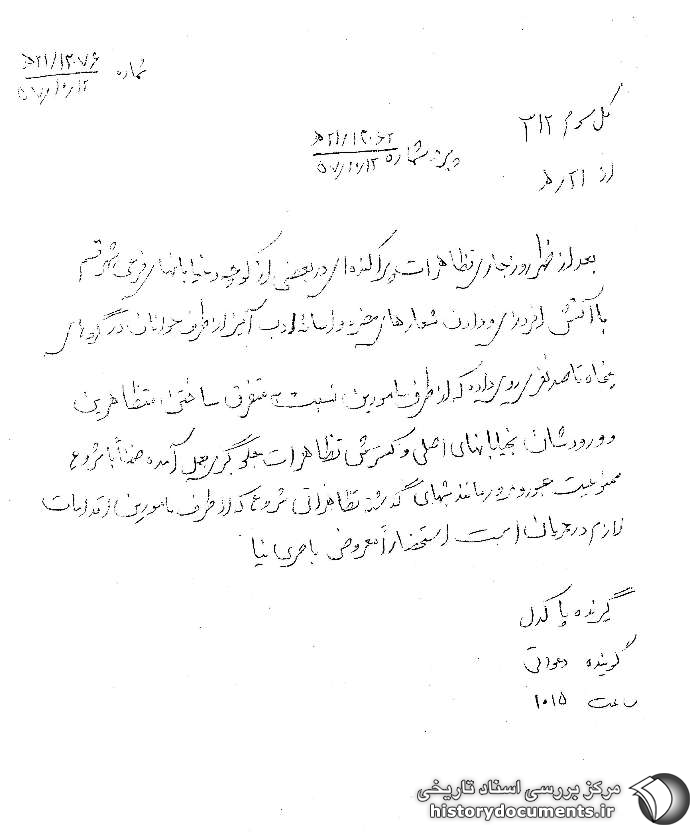 شماره ۲۱/۱۲۰۷۶ه
۵۷/۱۰/۱۲
کل سوم ۳۱۲
از ۲۱ ه
پیرو شماره ۲۱/۱۲۰۶۲ه
۵۷/۱۰/۱۲
بعد از ظهر روز جاری تظاهرات پراکنده ای در بعضی از کوچه و خیابانهای فرعی شهر قم
با آتش افروزی و دادن شعارهای مضره و اسائه ادب آمیز از طرف جوانان در گروههای
پنجاه تا صد نفری روی داده که از طرف مامورین نسبت به متفرق ساختن متظاهرین
و ورودشان بخیابانهای اصلی و گسترش تظاهرات جلوگیری بعمل آمده ضمناً با شروع
ممنوعیت عبور و مرور مانند شبهای گذشته تظاهراتی شروع که از طرف مامورین اقدامات
لازم در جریان است استحضاراً معروض
گیرنده پاکدل
گوینده
ساعت ۱۰۱۵
مرکز بررسی اسناد تاریخی
historydocuments.ir